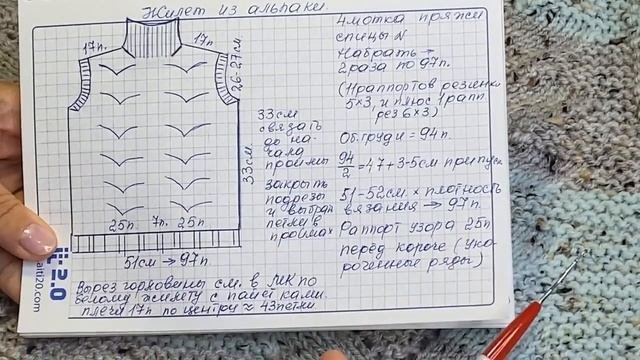 Жилет из альпаки.
17п.
17п.
26-27см.
33см.
25п. 7п. 25п
51см → 97п.
33см
связать
до на-
чала
проймы
закрыть
подрезы
и выбран
петли в
проймах
Вырез горловины см. в МК по
белому жилету с пометками.
плечи 17п по центру ≈ 43петли.
4 мотка пряжи
спицы N
Набрать →
2 раза по 97п.
(11 раппортов резинки
5×3, и плюс 1 рапп
рез 6×3)
Об. груди = 94п.
94/2 = 47 + 3-5см припуск
51-52см. × плотность
вязания → 97п.
Раппорт узора 25п
перёд короче (уко-
роченные ряды)
it20.com